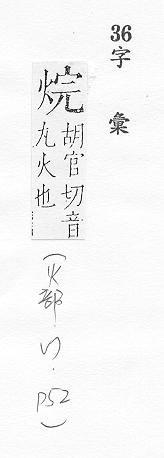 36字彙
烷
胡官切音
丸火也
(火部·
P52)